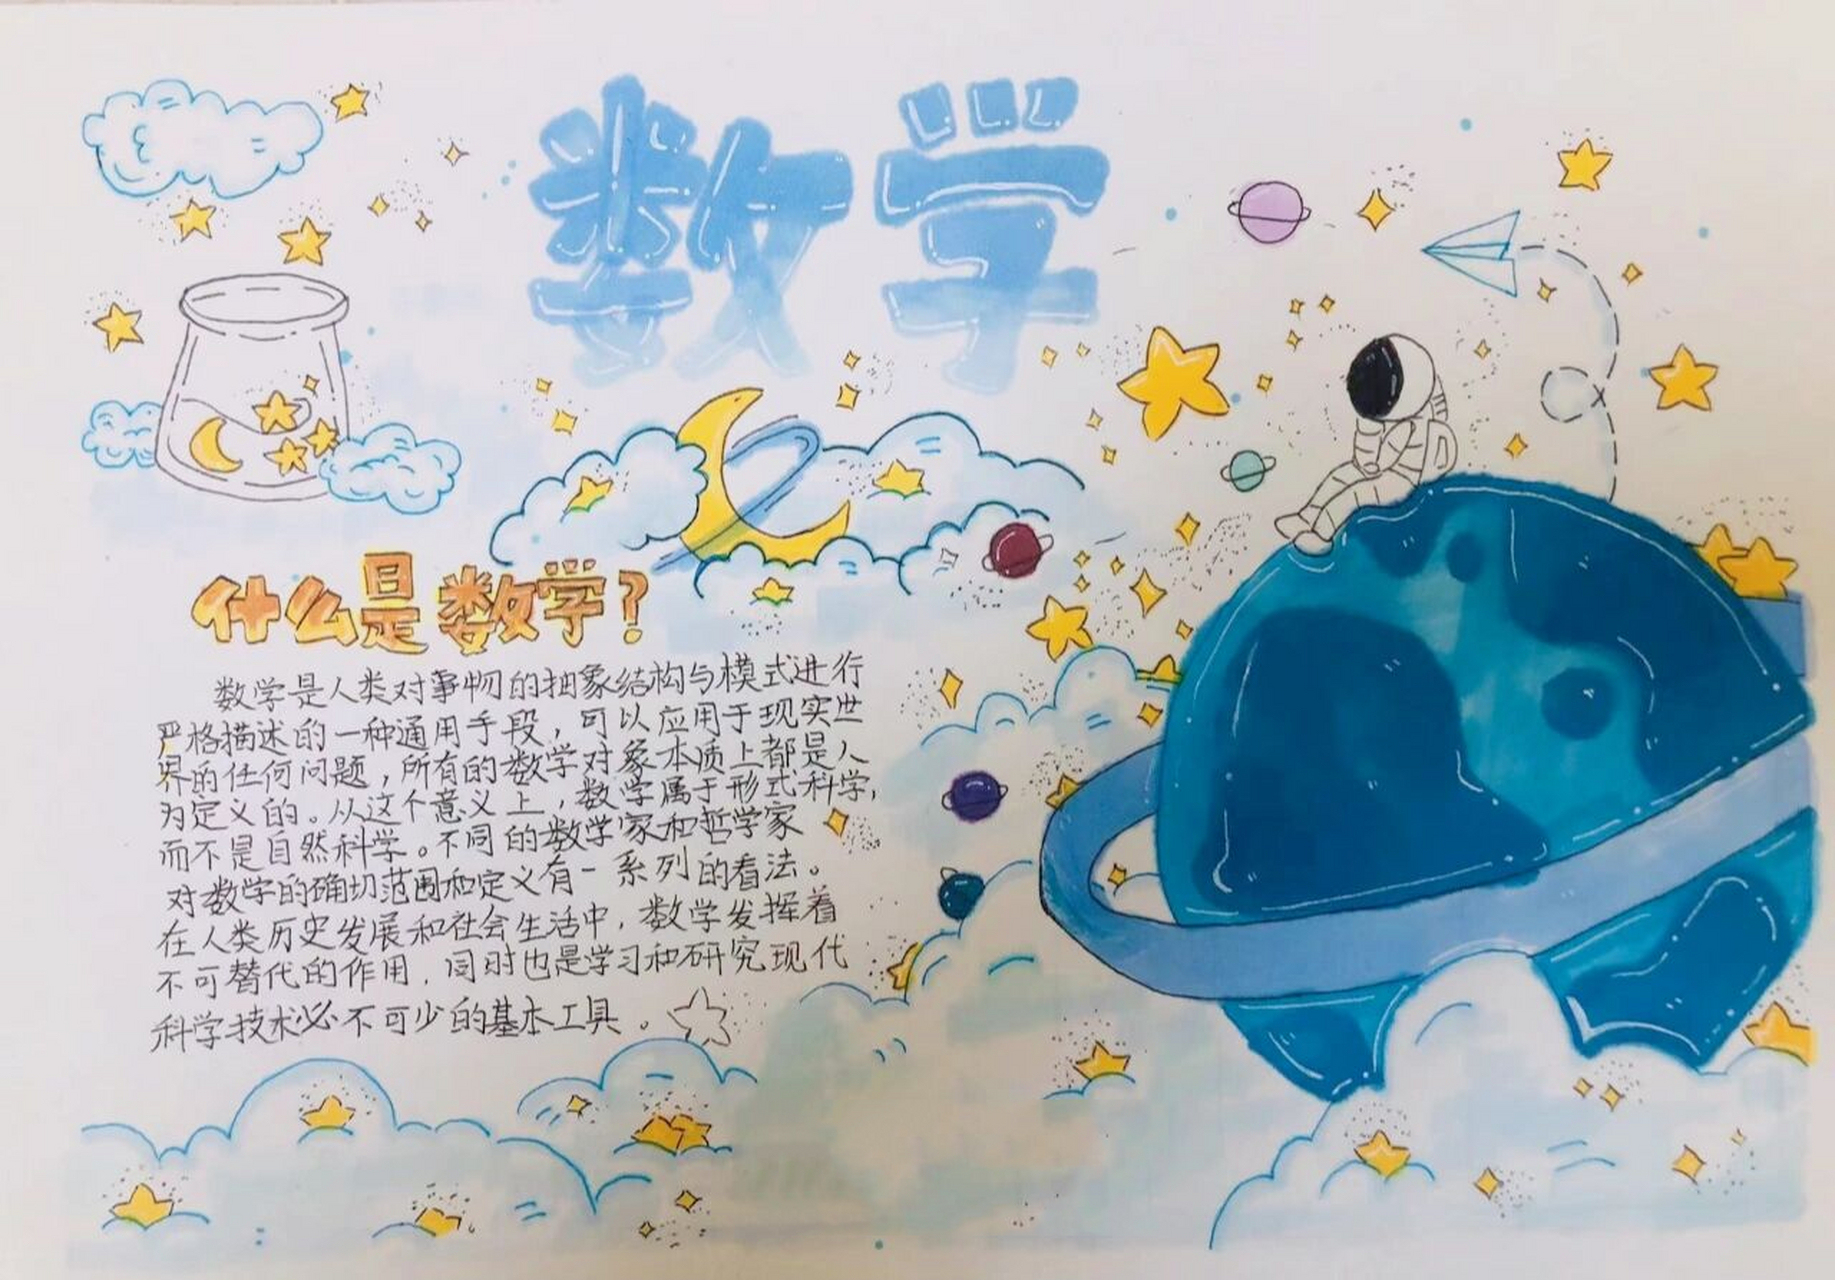 数学
什么是数学?
数学是人类对事物的抽象结构与模式进行
严格描述的一种通用手段，可以应用于现实世
界的任何问题，所有的数学对象本质上都是人
为定义的。从这个意义上，数学属于形式科学，
而不是自然科学。不同的数学家和哲学家
对数学的确切范围和定义有一系列的看法。
在人类历史发展和社会生活中，数学发挥着
不可替代的作用，同时也是学习和研究现代
科学技术必不可少的基本工具。